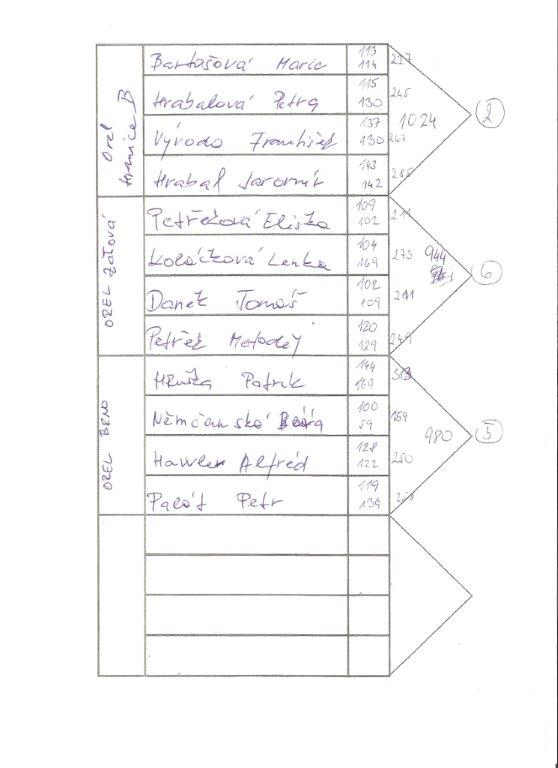 Orel Hranice B
Bartošová Marie 113 114 227
Hrabalová Petra 115 130 245
Výroda František 137 130 267
Hrabal Jaromír 143 142 285
1024 2
OREL
Petřeková Eliška 109 102 211
Koláčková Lenka 104 169 273
Daněk Tomáš 102 109 211
Petřek Metoděj 120 129 249
944 6
OREL BRNO
Hruška Patrik 144 169 313
Němčanská 100 59 159
Alfréd 128 122 250
Palát Petr 119 139
980 5